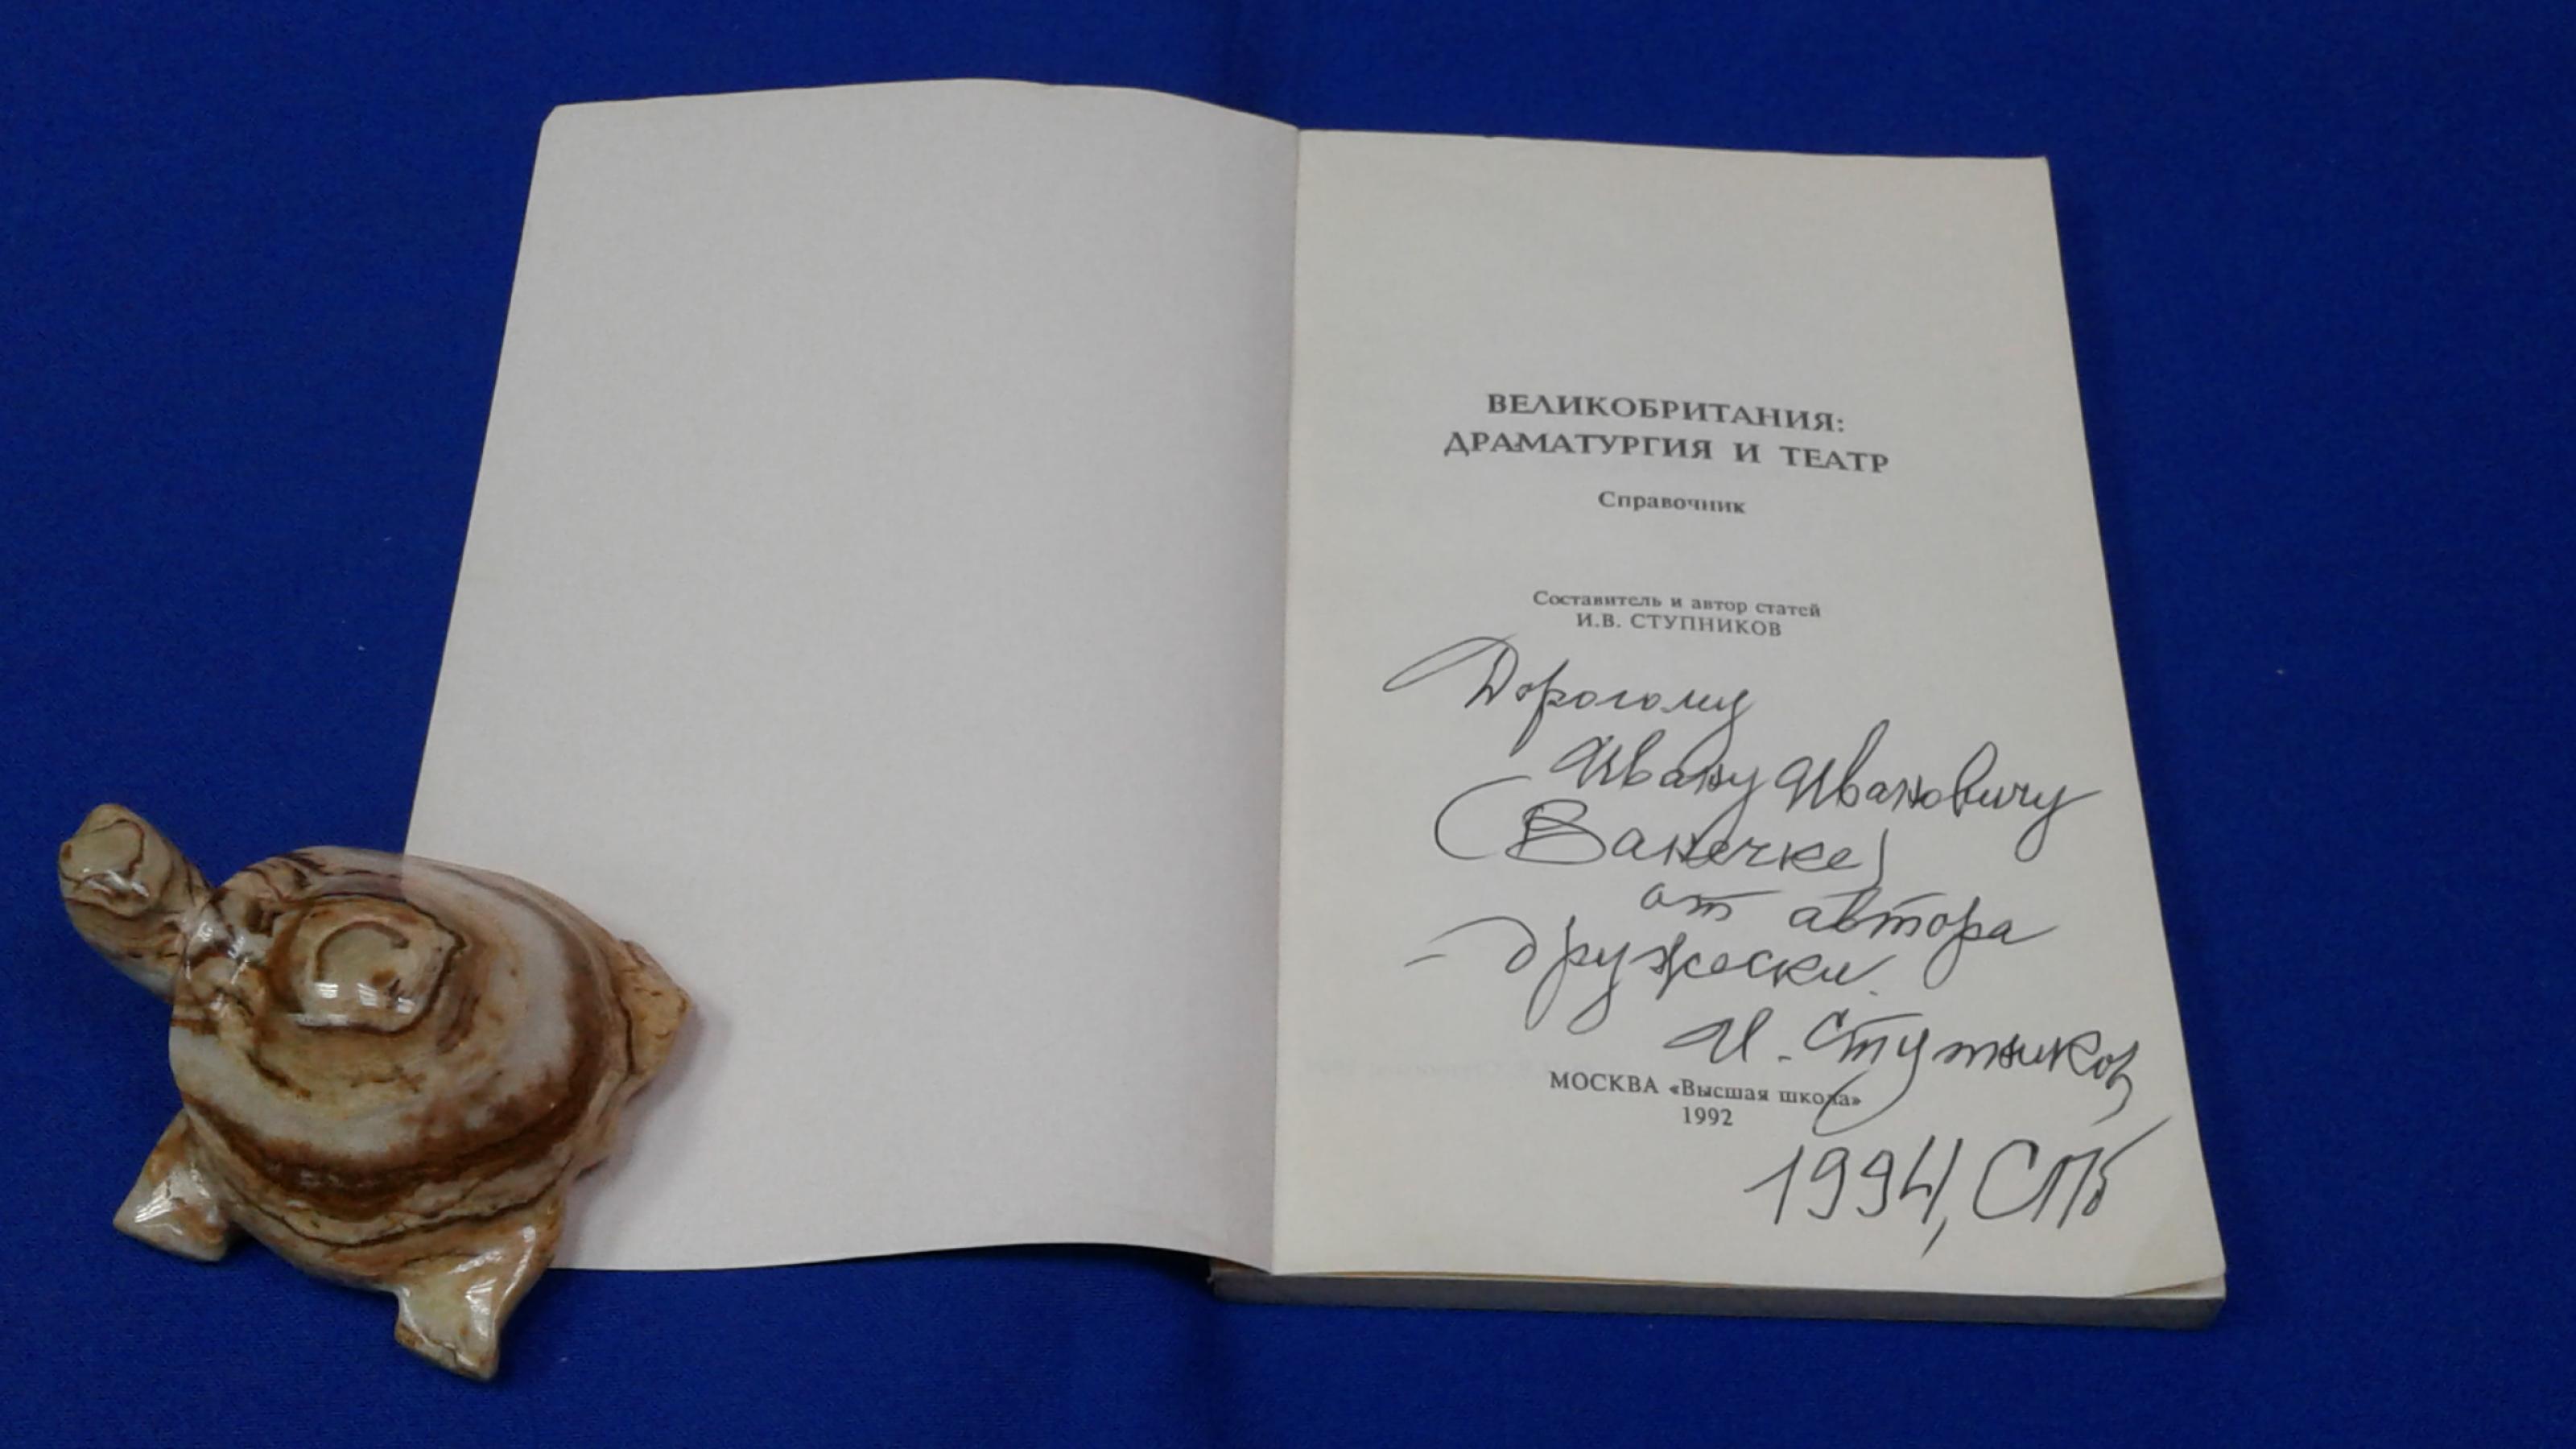 ВЕЛИКОБРИТАНИЯ:
ДРАМАТУРГИЯ И ТЕАТР
Справочник
Составитель и автор статей
И.В. СТУПНИКОВ
Дорогому
Ивану Ивановичу
(Ванечке)
от автора
- дружески.
И. Ступников
МОСКВА «Высшая школа»
1992
1994, СПб